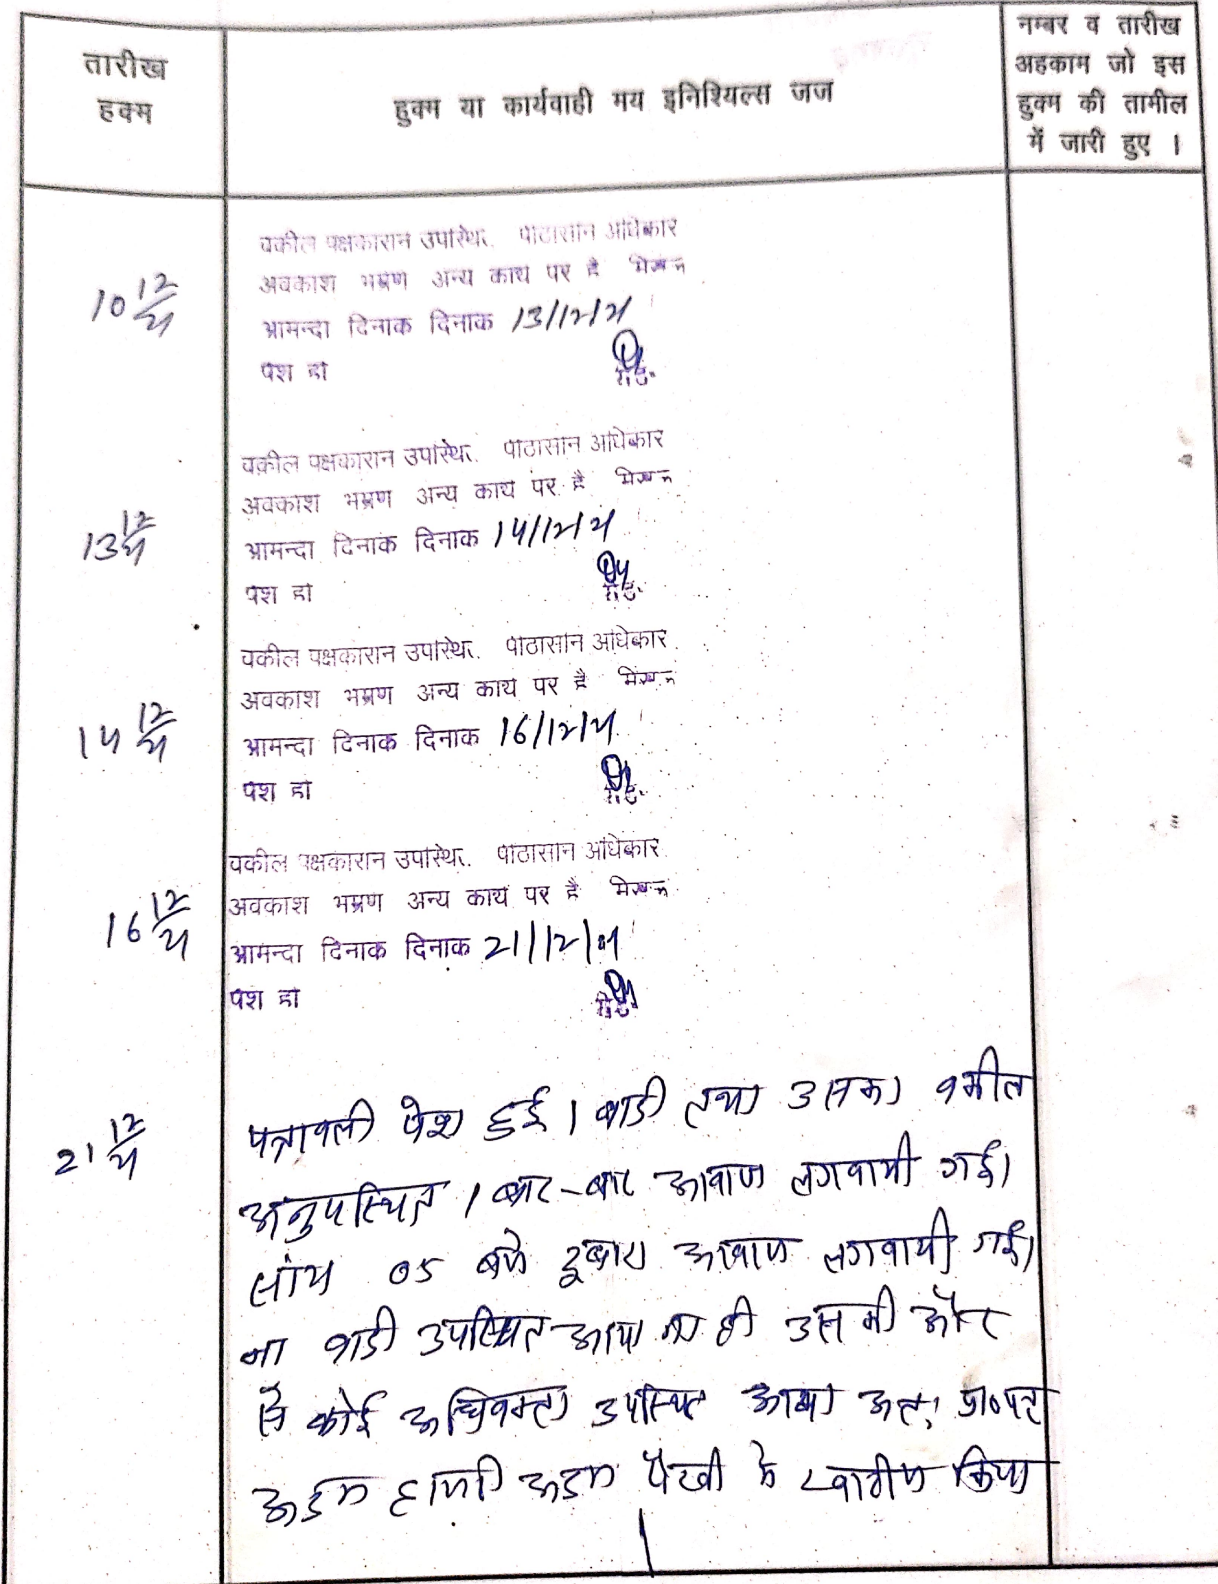 तारीख
हक्म
हुक्म या कार्यवाही मय इनिश्यिल्स जज
नम्बर व तारीख
अहकाम जो इस
हुक्म की तामील
में जारी हुए ।
10 12/21
वकील पक्षकारान उपस्थिर. पीठासीन अधिकार
अवकाश भम्रण अन्य काय पर है मिसल
आमन्दा दिनाक दिनाक 13/12/21
पेश हो
13 12/21
वकील पक्षकारान उपस्थिर. पीठासीन अधिकार
अवकाश भम्रण अन्य काय पर है मिसल
आमन्दा दिनाक दिनाक 14/12/21
पेश हो
14 12/21
वकील पक्षकारान उपस्थिर. पीठासीन अधिकार
अवकाश भम्रण अन्य काय पर है मिसल
आमन्दा दिनाक दिनाक 16/12/21
पेश हो
16 12/21
वकील पक्षकारान उपस्थिर. पीठासीन अधिकार
अवकाश भम्रण अन्य काय पर है मिसल
आमन्दा दिनाक दिनाक 21/12/21
पेश हो
21 12/21
पत्रावली पेश हुई। वादी तथा उसका वकील
अनुपस्थित। बार-बार आवाज लगवायी गई।
सांय 05 बजे दूबारा आवाज लगवायी गई।
ना वादी उपस्थित आया ना ही उसकी और
से कोई अधिवक्ता उपस्थित आया अतः प्रा०पत्र
अदम हाजरी अदम पैरवी मे खारीज किया